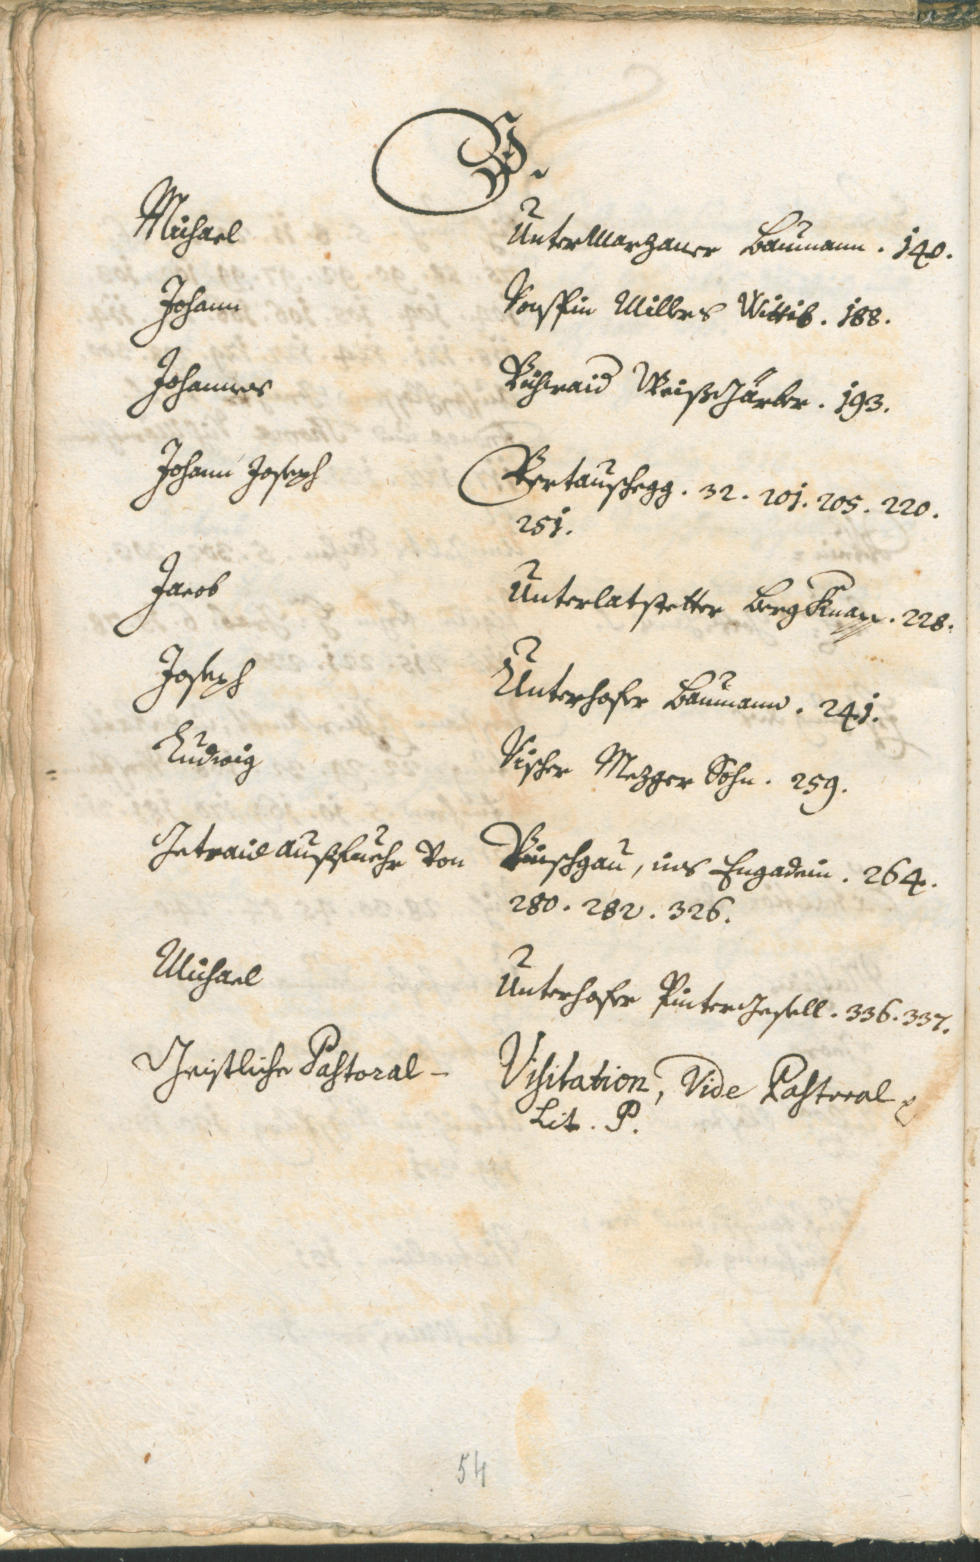 V.
Michael Untermarzoner Baumann. 140.
Johann Müllers Wittib. 188.
Johannes Weißgärber. 193.
Johann Joseph Vertauschegg. 32. 201. 205. 220.
251.
Jacob Unterlatstetter BergKnapp. 228.
Joseph Unterhofer Baumann. 241.
Ludwig Vischer Mezger Sohn. 259.
Getraid Außfuehr Von Vinschgau, ins Engadein. 264.
280. 282. 326.
Michael Unterhofer Pintergesell. 336. 337.
Geistliche Pastoral- Visitation, Vide Pastoral
Lit. P.
54